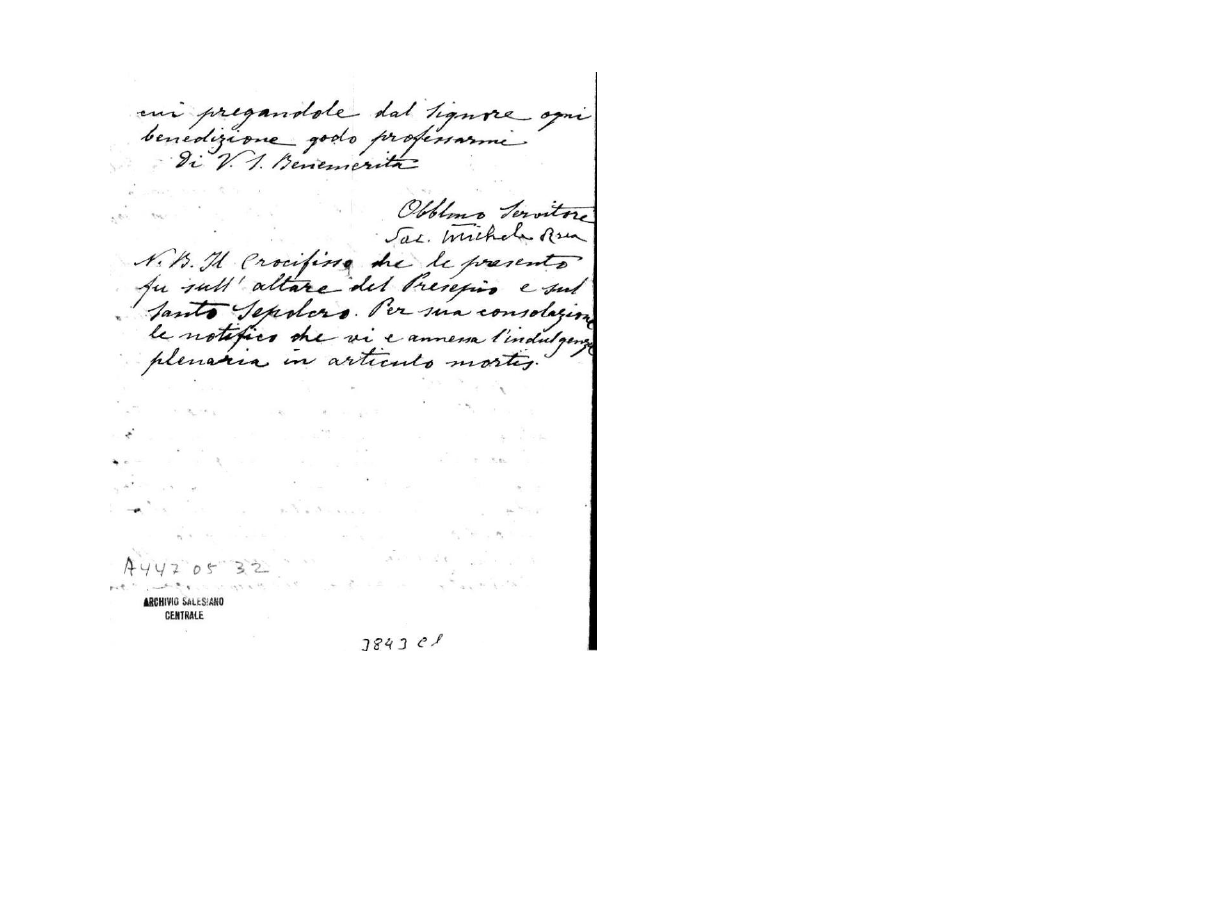 cui pregandole dal Signore ogni
benedizione godo professarmi
Di V. S. Benemerita
Obblmo Servitore
Sac. Michele Rua
N. B. Il Crocifisso che le presento
fu sull' altare del Presepio e sul
Santo Sepolcro. Per sua consolazione
le notifico che vi e annessa l'indulgenza
plenaria in articulo mortis.
A447 05 32
ARCHIVIO SALESIANO
CENTRALE
3843